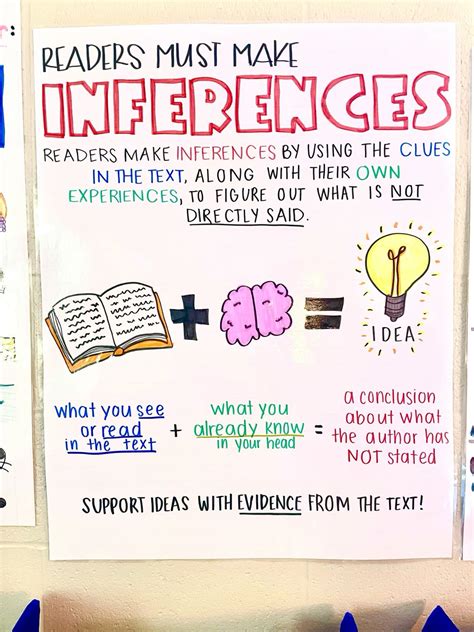 READERS MUST MAKE
INFERENCES
READERS MAKE INFERENCES BY USING THE CLUES
IN THE TEXT, ALONG WITH THEIR OWN
EXPERIENCES, TO FIGURE OUT WHAT IS NOT
DIRECTLY SAID.
+ =
IDEA
what you see
or read
in the text
+
what you
already know
in your head
=
a conclusion
about what
the author has
NOT stated
SUPPORT IDEAS WITH EVIDENCE FROM THE TEXT!